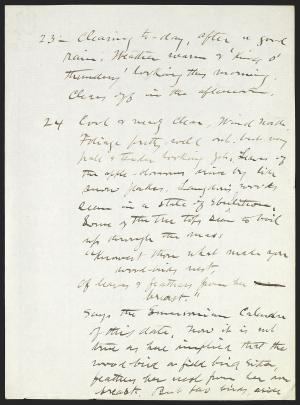 23 - Clearing to-day, after a good
rain. Weather warm & "kind o'
thundery" looking this morning.
Clears off in the afternoon.
24 Cool & very clear, Wind North.
Foliage pretty well out, but very
pale & tender looking yet.
the apple-drowns drive by like
snow flakes. Langdon's woods
seem in a state of ebulition.
Some of the tree tops seem to boil
up through the mass
"Knowest thou what make yon
wood-birds nest
Of leaves & feathers from her
breast."
Says the Emersonian Calendar
of this date. Now it is not
true as here implied that the
wood-bird or field bird either,
feathers her nest from her own
breast. But few birds, aside